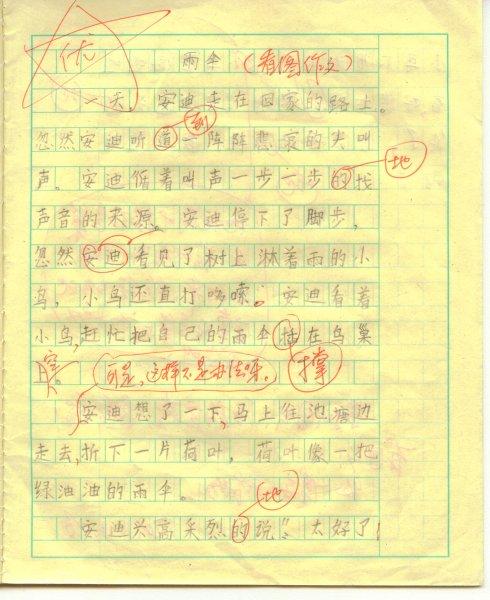 优
雨伞 (看图作文)
一天。安迪走在回家的路上。
到
忽然安迪听道一阵阵悲哀的尖叫
地
声。安迪循着叫声一步一步的找
声音的来源。安迪停下了脚步,
忽然安迪看见了树上淋着雨的小
鸟,小鸟还直打哆嗦。安迪看着
小鸟,赶忙把自己的雨伞插在鸟巢
上。(可是,这样不是办法呀。) 撑
安迪想了一下,马上往池塘边
走去,折下一片荷叶,荷叶像一把
绿油油的雨伞。
地
安迪兴高采烈的说:“太好了!